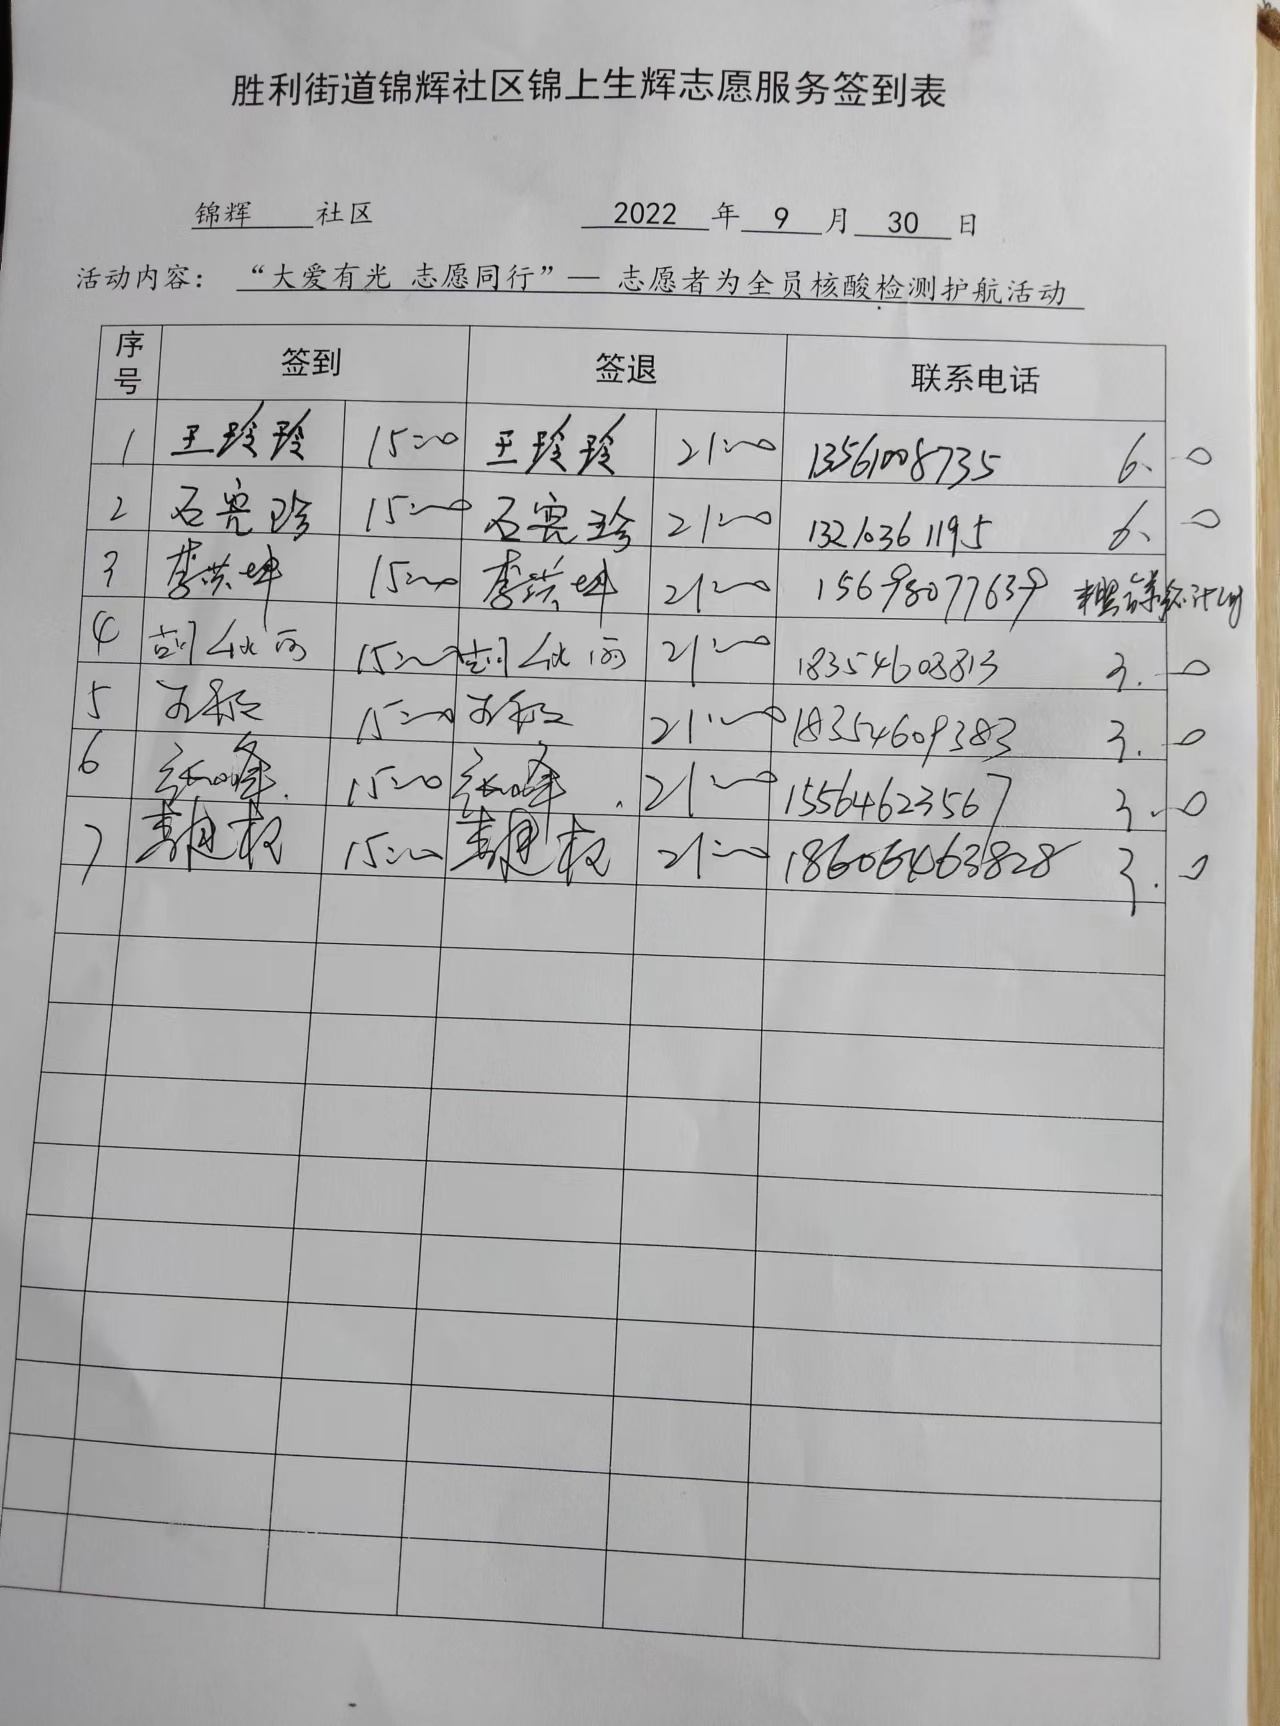 胜利街道锦辉社区锦上生辉志愿服务签到表
锦辉 社区 2022 年 9 月 30 日
活动内容： “大爱有光 志愿同行”— 志愿者为全员核酸检测护航活动
序号 签到 签退 联系电话
1 王玲玲 15:00 王玲玲 21:00 13561008735 6.0
2 石亮珍 15:00 石亮珍 21:00 13210361195 6.0
3 李洪坤 15:00 李洪坤 21:00 15698077639
4 15:00 21:00 18354608813 3.0
5 15:00 21:00 18354609383 3.0
6 15:00 21:00 15564623567 3.0
7 15:00 21:00 18606463828 3.0